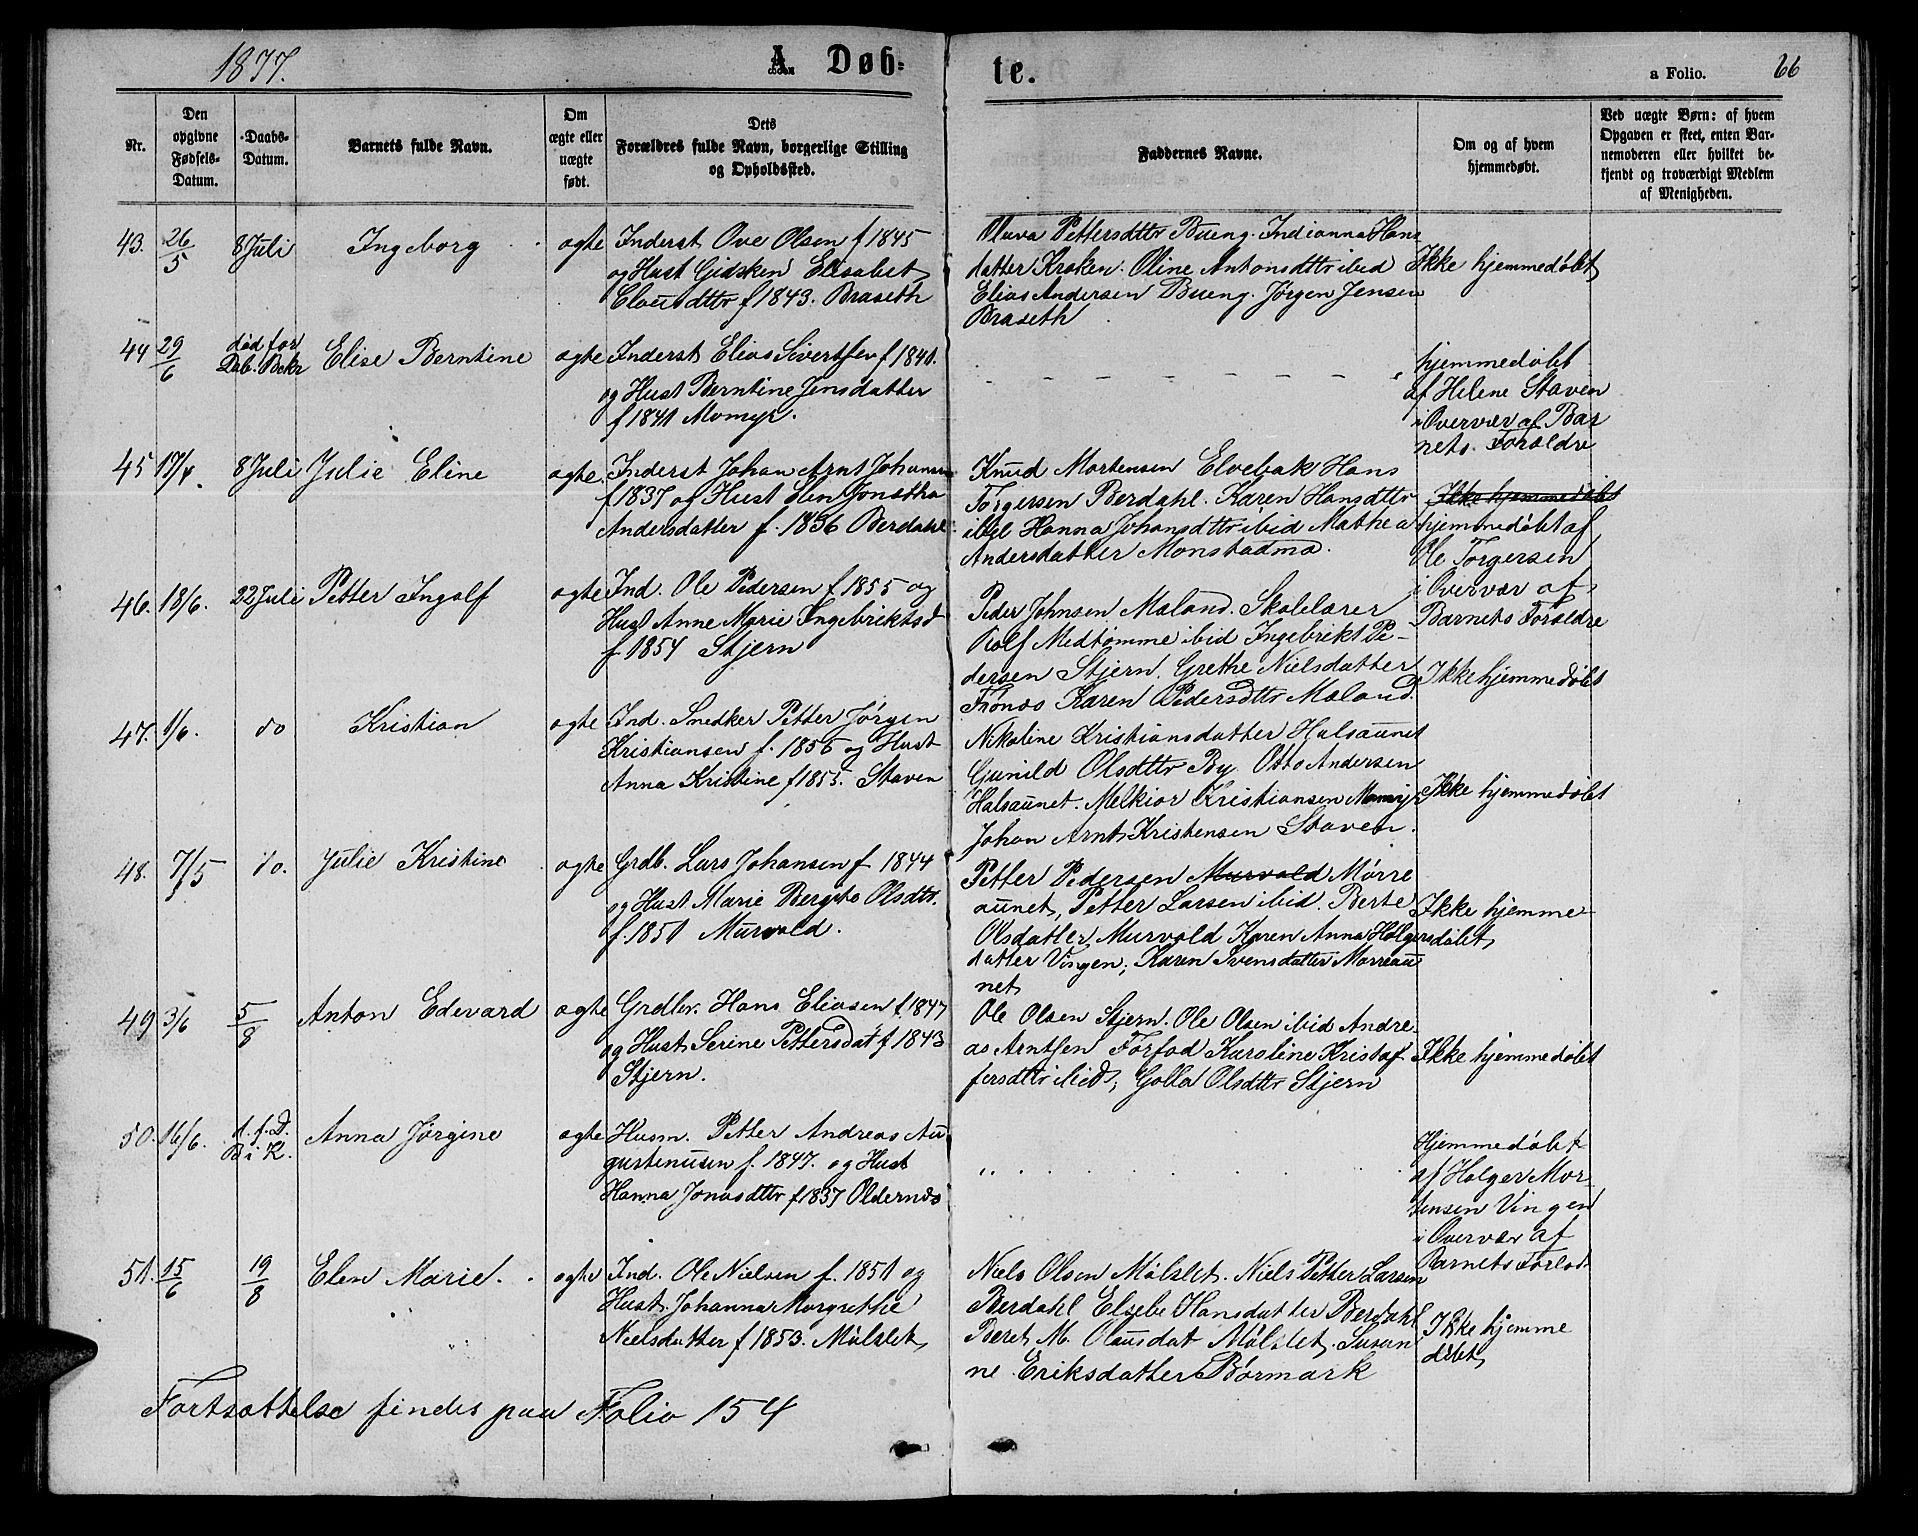 1877.
A. Døb-
te.
a Folio.
66
Nr.
Den
opgivne
Fødsels-
Datum.
Daabs-
Datum.
Barnets fulde Navn.
Om
ægte eller
uægte
født.
Dets
Forældres fulde Navn, borgerlige Stilling
og Opholdssted.
Faddernes Navne.
Om og af hvem
hjemmedøbt.
Ved uægte Børn: af hvem
Opgaven er skeet, enten Bar-
nemoderen eller hvilket be-
kjendt og troværdigt Medlem
af Menigheden.
43. 26/5 8 Juli Ingeborg ægte
Inderst Ove Olsen f 1845
og Hust Gidsken Elisabet
Clausdttr f 1843. Braseth
Oluva Pettersdttr Bueng. Indianna Hans
datter Kroken. Oline Antonsdttr ibid
Elias Andersen Bueng. Jørgen Jensen
Braseth
Ikke hjemmedøbt
44 29/6 død før
Dåb. Bekr
Elise Berntine ægte
Inderst Elias Sivertsen f 1840.
og Hust Berntine Jensdatter
f 1841 Momyr.
hjemmedøbt
af Helene Staven
i Overvær af Bar
nets Foræld­re
45 17/4. 8 Juli Julie Eline ægte.
Inderst Johan Arnt Johansen
f 1837 og Hust Elen Jonetha
Andersdatter f. 1836 Berdahl
Knud Mortensen Elvebak Hans
Torgersen Berdahl. Karen Hansdttr
ibid Hanna Johansdttr ibid Mathea
Andersdatter Monstadmo.
Ikke hjemmedøbt
hjemmedøbt af
Ole Torgersen
i Overvær af
Barnets Forældre
46. 18/6. 22 Juli Petter Ingolf ægte
Ind. Ole Pedersen f. 1855 og
Hust Anne Marie Ingebriktsd
f 1854 Stjern
Peder Johnsen Maland. Skolelærer
Rolf Medtømme ibid Ingebrikt Pe-
dersen Stjern. Grethe Nielsdatter
Fønæs Karen Pedersdttr Maland.
Ikke hjemmedøbt
47. 1/6. do Kristian ægte
Ind. Snedker Petter Jørgen
Kristiansen f. 1856 og Hust
Anna Kristine f 1855. Staven
Nikoline Kristiansdatter Halsaunet
Gunild Olsdttr By. Otto Andersen
Halsaunet. Melkior Kristiansen Momyr
Johan Arnt Kristensen Staven.
Ikke hjemmedøbt
48. 7/5 do. Julie Kristine ægte
Grdb. Lars Johansen f 1844
og Hust Marie Bergito Olsdttr.
f. 1850 Murvold.
Petter Pedersen Murvold Mørre
aunet, Petter Larsen ibid. Berte
Olsdatter Murvold Karen Anna Holgers
datter Vingen; Karen Svensdatter Mørreau
net
Ikke hjemme-
døbt
49 3/6 5/8 Anton Edevard ægte
Grdbr. Hans Eliasen f. 1847
og Hust. Serine Pettersdat f 1843
Stjern.
Ole Olsen Stjern. Ole Olsen ibid Andre-
as Arntsen Forfod Karoline Kristof-
fersdttr ibid; Golla Olsdttr Stjern
Ikke hjemmedøbt
50. 16/6. d. f. D.
B i K.
Anna Jørgine ægte
Husm. Petter Andreas Au
gustinusen f. 1847. og Hust
Hanna Jonasdttr f 1837 Oldernæs
„
Hjemmedøbt
af Holger Mor-
tensen Vingen
i Overvær af
Barnets Foræld.
51. 15/6 19/8 Elen Marie. ægte
Ind. Ole Nielsen f. 1851 og
Hust. Johanna Margrethe
Nielsdatter f 1853. Mølslet
Niels Olsen Mølslet. Niels Petter Larsen
Berdahl Elsebe Hansdatter Berdahl
Beret M. Olausdat Mølslet. Susan
ne Eriksdatter Børmark
Ikke hjemme
døbt
Fortsættelse findes paa Folio 154